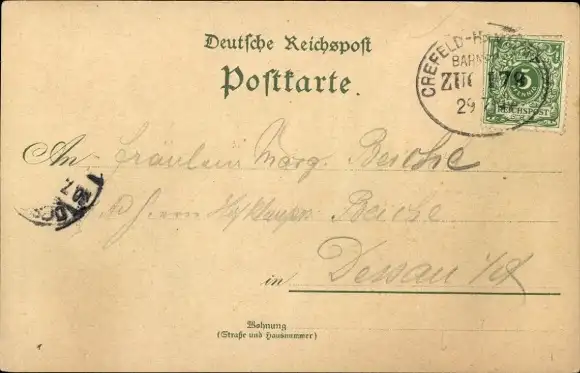 Deutsche Reichspost
Postkarte.
CREFELD-HA
BAHN
ZUG 179
29 7
REICHSPOST
An Fräulein Marg. Beiche
Herrn Beiche
in Dessau
Wohnung
(Straße und Hausnummer)